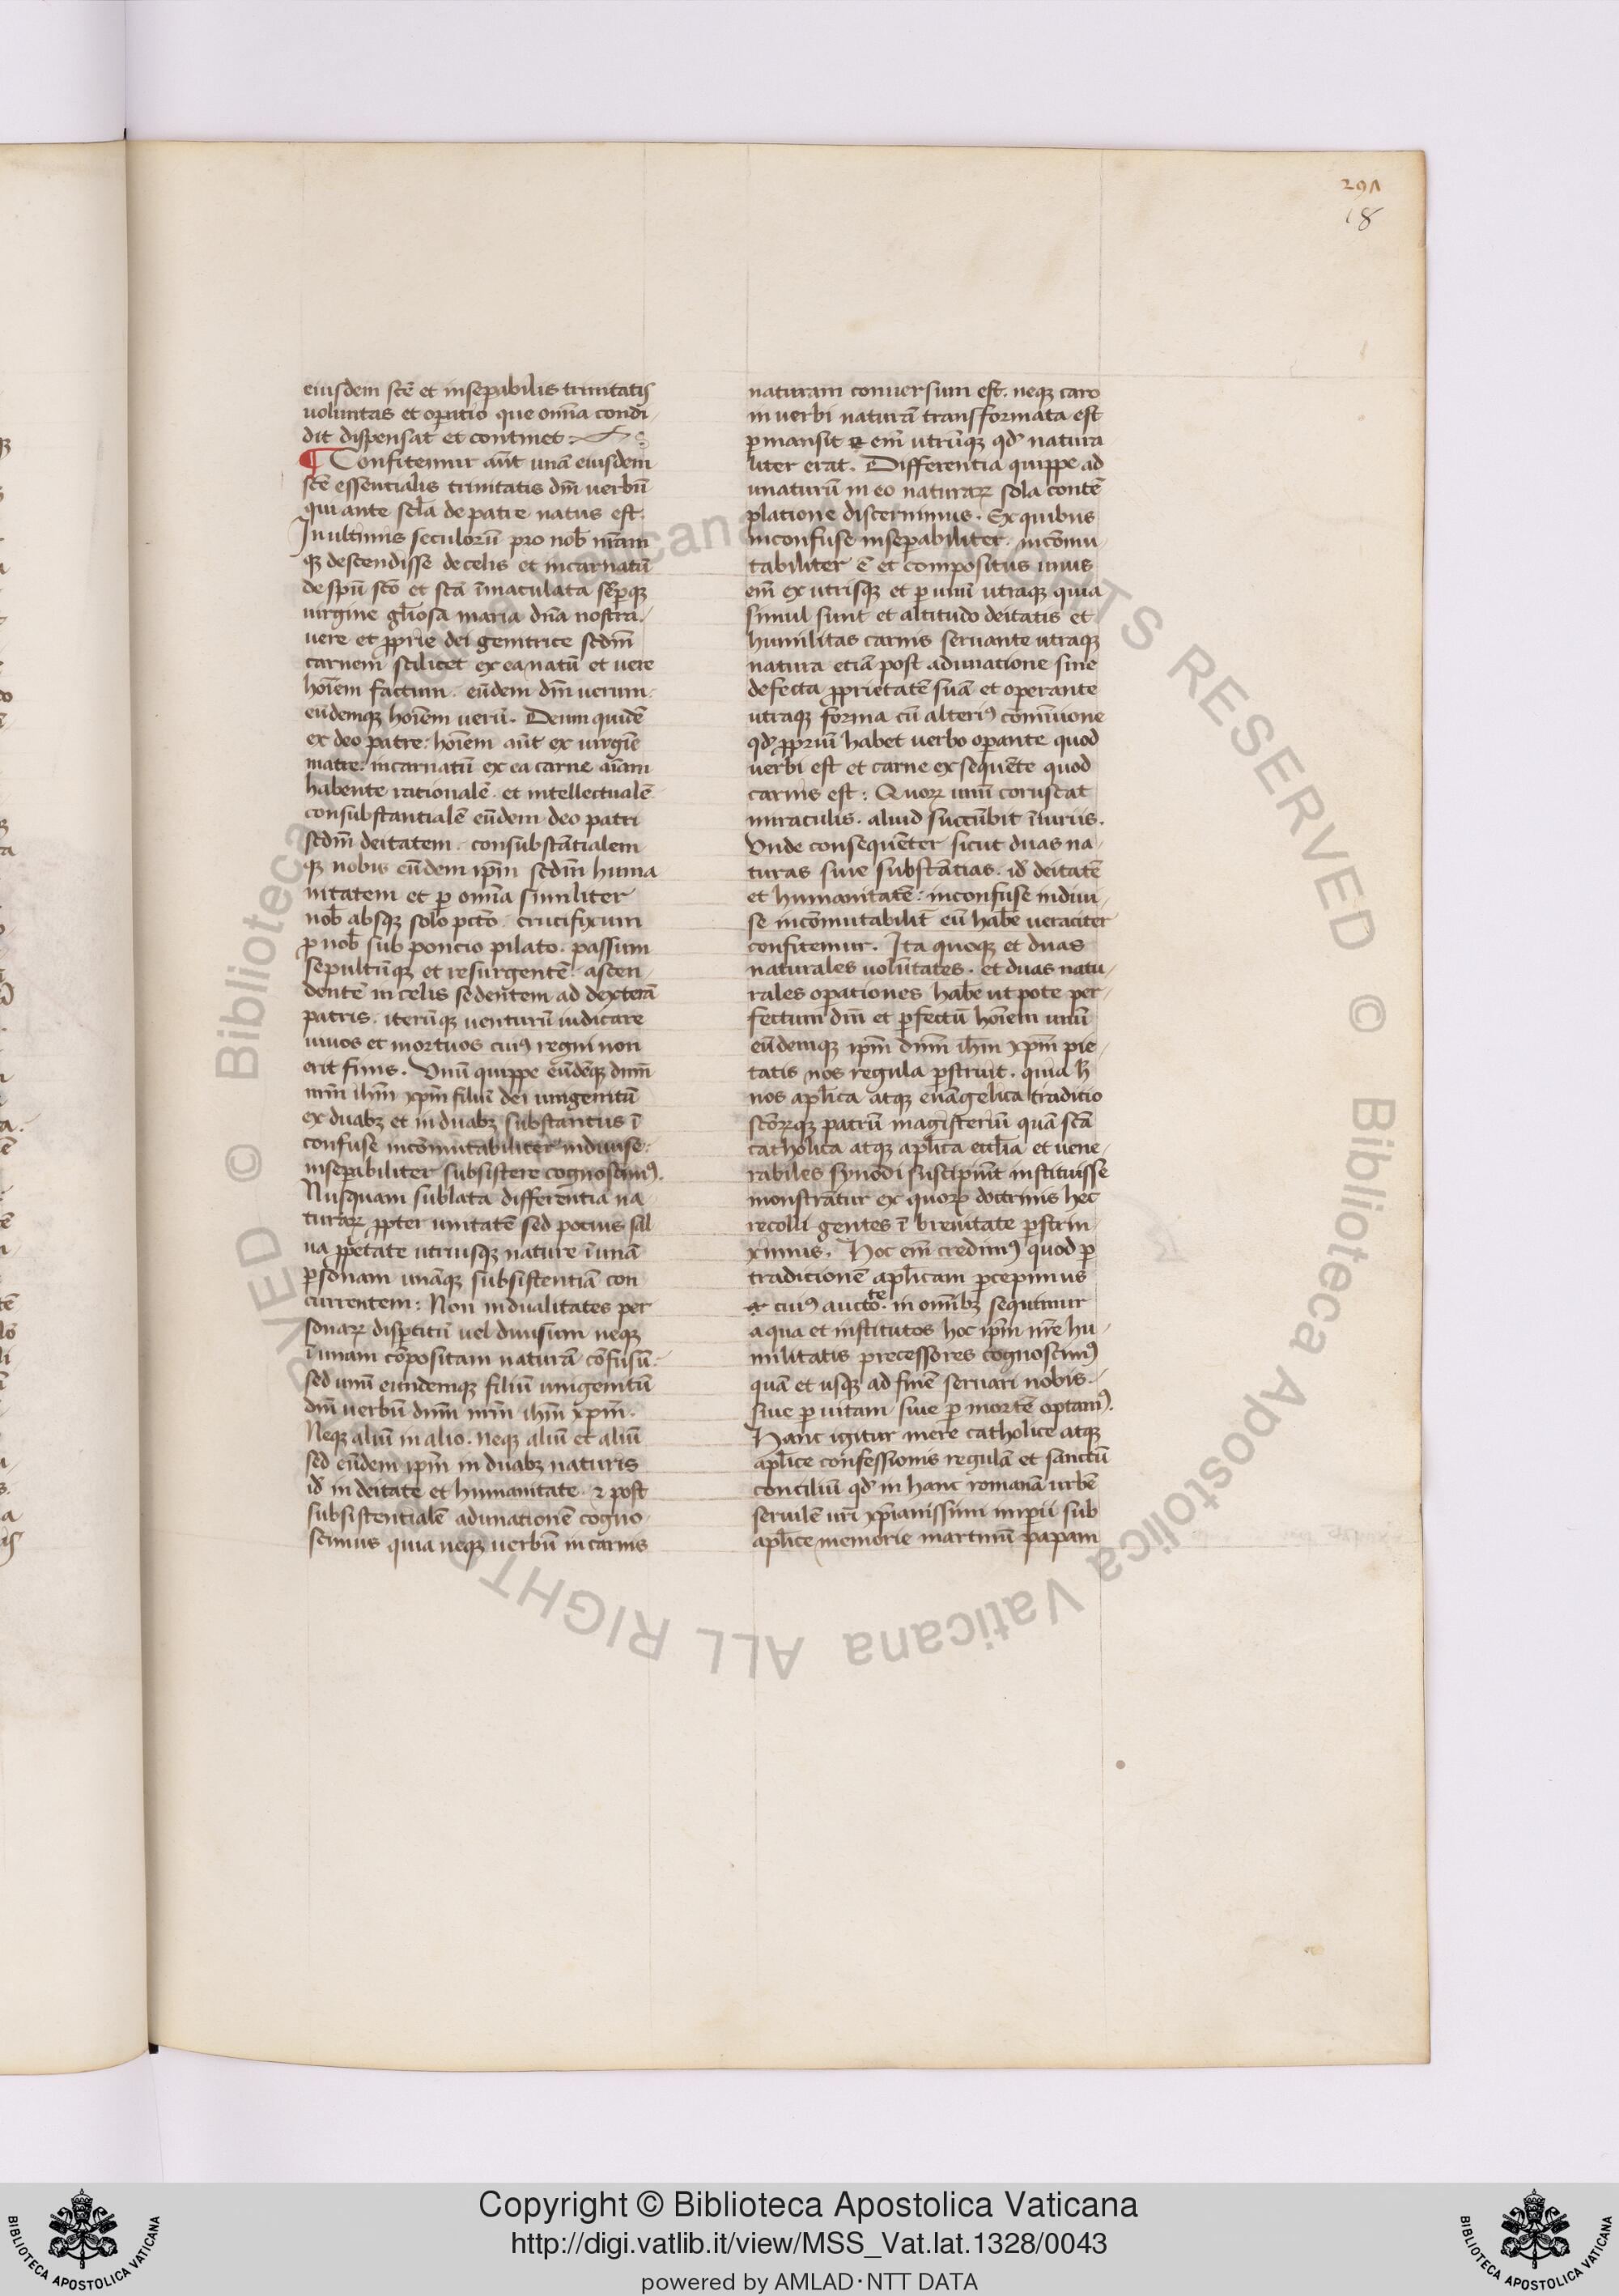 291
18
eiusdem scē et insepabilis trinitatis
voluntas et opatio que omīa condi
dit dispensat et continet
¶ Confitemur aūt unā eiusdem
scē essentialis trinitatis dm̄ verbū
qui ante sc̄la de patre natus est.
In ultimis seculorū pro nob̄ nr̄am
qꝫ descendisse de celis et incarnatū
de spū scō et scā īmaculata semp̱qꝫ
virgine gl̄iosa maria dn̄a nostra.
vere et ꝓprie dei genitrice scdm̄
carnem scilicet ex ea natū et vere
hoīem factum. eūdem dm̄ verum.
eūdemqꝫ hoīem verū. Deum quidē
ex deo patre: hoīem aūt ex virgīe
matre: incarnatū ex ea carne aīam
habente rationalē. et intellectualē
consubstantialē eūdem deo patri
scdm̄ deitatem. consubstātialem
qꝫ nobis eūdem ipm̄ scdm̄ huma
nitatem et ꝑ omīa similiter
nob̄ absqꝫ solo pctō. crucifixum
ꝓ nob̄ sub poncio pilato. passum
sepultūqꝫ et resurgentē. ascen
dentē in celis sedentem ad dexterā
patris. iterūqꝫ venturū iudicare
vivos et mortuos cuiꝰ regni non
erit finis. Unū quippe eūdēqꝫ dnm̄
nrm̄ ihm̄ xpm̄ filiū dei unigenitū
ex duabꝫ et in duabꝫ substantiis ī
confuse incōmutabiliter indivise:
insepabiliter subsistere cognoscimꝰ.
Nusquam sublata differentia na
turaꝝ ꝓpter unitatē sed potius sal
va ꝓpetate utriusqꝫ nature ī unā
ꝑsonam unāqꝫ subsistentiā con
currentem: Non in dualitates per
sonaꝝ disꝑtitū vel divisum neqꝫ
ī unam cōpositam naturā cōfusū.
sed unū eundemqꝫ filiū unigenitū
dm̄ verbū dnm̄ nrm̄ ihm̄ xpm̄.
Neqꝫ aliū in alio. neqꝫ aliū et aliū
sed eūdem ipm̄ in duabꝫ naturis
id̄ in deitate et humanitate. ⁊ post
subsistentialē adunationē cogno
scimus quia neqꝫ verbū in carnis
naturam conversum est. neqꝫ caro
in verbi naturā transformata est
ꝑmansit em̄ utrūqꝫ qd̄ natura
liter erat. Differentia quippe ad
unaturū in eo naturaꝝ sola contē
platione discernimus. Ex quibus
inconfuse insepabiliter. incōmu
tabiliter ē et compositus unus
em̄ ex utrisqꝫ et ꝑ unū utraqꝫ quia
simul sunt et altitudo deitatis et
humilitas carnis servante utraqꝫ
natura etiā post adunatione sine
defecta ꝓprietatē suā et operante
utraqꝫ forma cū alteriꝰ cōmunione
qd̄ ꝓpriū habet verbo opante quod
verbi est et carne exsequēte quod
carnis est: Quoꝝ unū coruscat
miraculis. aliud succūbit īiuriis.
Unde consequēter sicut duas na
turas sive substātias. id̄ deitatē
et humanitatē: inconfuse indivi
se incōmutabilit̄ eū hab̄e veraciter
confitemur. Ita quoqꝫ et duas
naturales volūtates. et duas natu
rales opationes hab̄e utpote per
fectum dm̄ et ꝑfectū hoīem unū
eūdemqꝫ ipm̄ dnm̄ ihm̄ xpm̄ pie
tatis nos regula ꝑstruit. quia h̄
nos apl̄ica atqꝫ evāgelica traditio
scōꝝqꝫ patrū magisteriū quā scā
catholica atqꝫ apl̄ica eccl̄ia et vene
rabiles synodi suscipiūt instituisse
monstratur ex quoꝝ doctrinis hec
recolligentes ī brevitate ꝑstrin
ximus. Hoc em̄ credimꝰ quod ꝑ
traditionē apl̄icam ꝑcepimus
cuiꝰ auctote in omībꝫ sequimur
a qua et institutos hoc ipm̄ nr̄e hu
militatis precessores cognoscimꝰ
quā et usqꝫ ad finē servari nobis.
sive ꝑ vitam sive ꝑ mortē optamꝰ.
Hanc igitur mere catholice atqꝫ
apl̄ice confessionis regulā et sanctū
conciliū qd̄ in hanc romanā urbē
servilē vr̄i xp̄ianissimi imꝑii sub
apl̄ice memorie martinū papam
© Biblioteca Apostolica Vaticana ALL RIGHTS RESERVED
© Biblioteca Apostolica Vaticana ALL RIGHTS RESERVED
Copyright © Biblioteca Apostolica Vaticana
http://digi.vatlib.it/view/MSS_Vat.lat.1328/0043
powered by AMLAD·NTT DATA
BIBLIOTECA APOSTOLICA VATICANA
BIBLIOTECA APOSTOLICA VATICANA